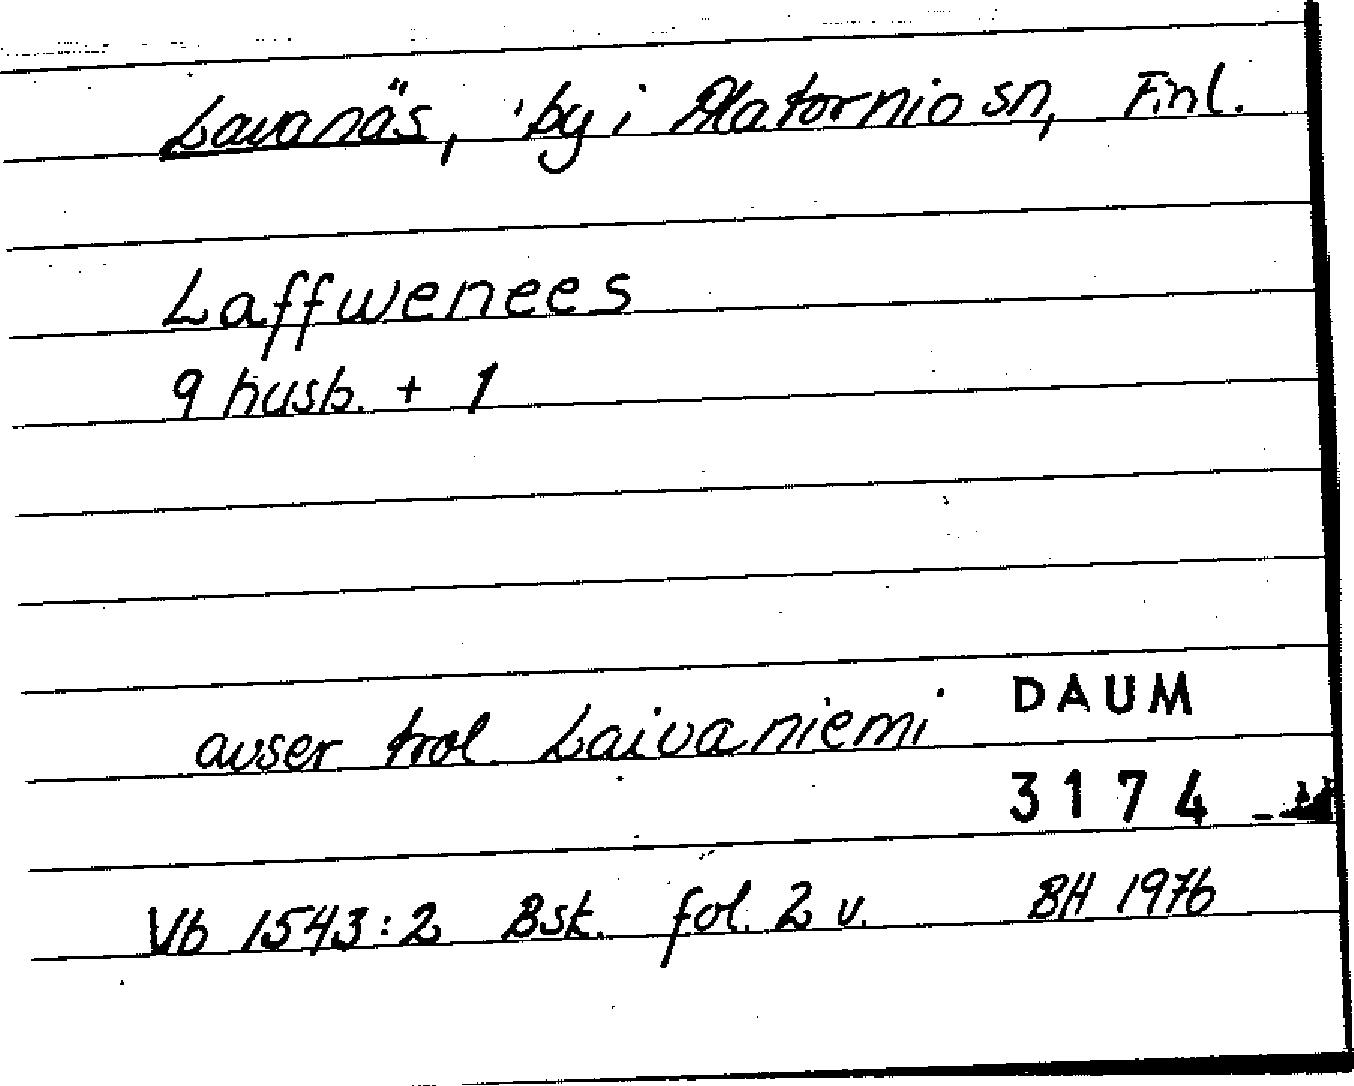 Lavanäs, by i Alatornio sn, Finl.
Laffwenees
9 husb. + 1
avser trol Laivaniemi
DAUM
3174
Vb 1543:2 Bsk. fol. 2 v. BH 1976